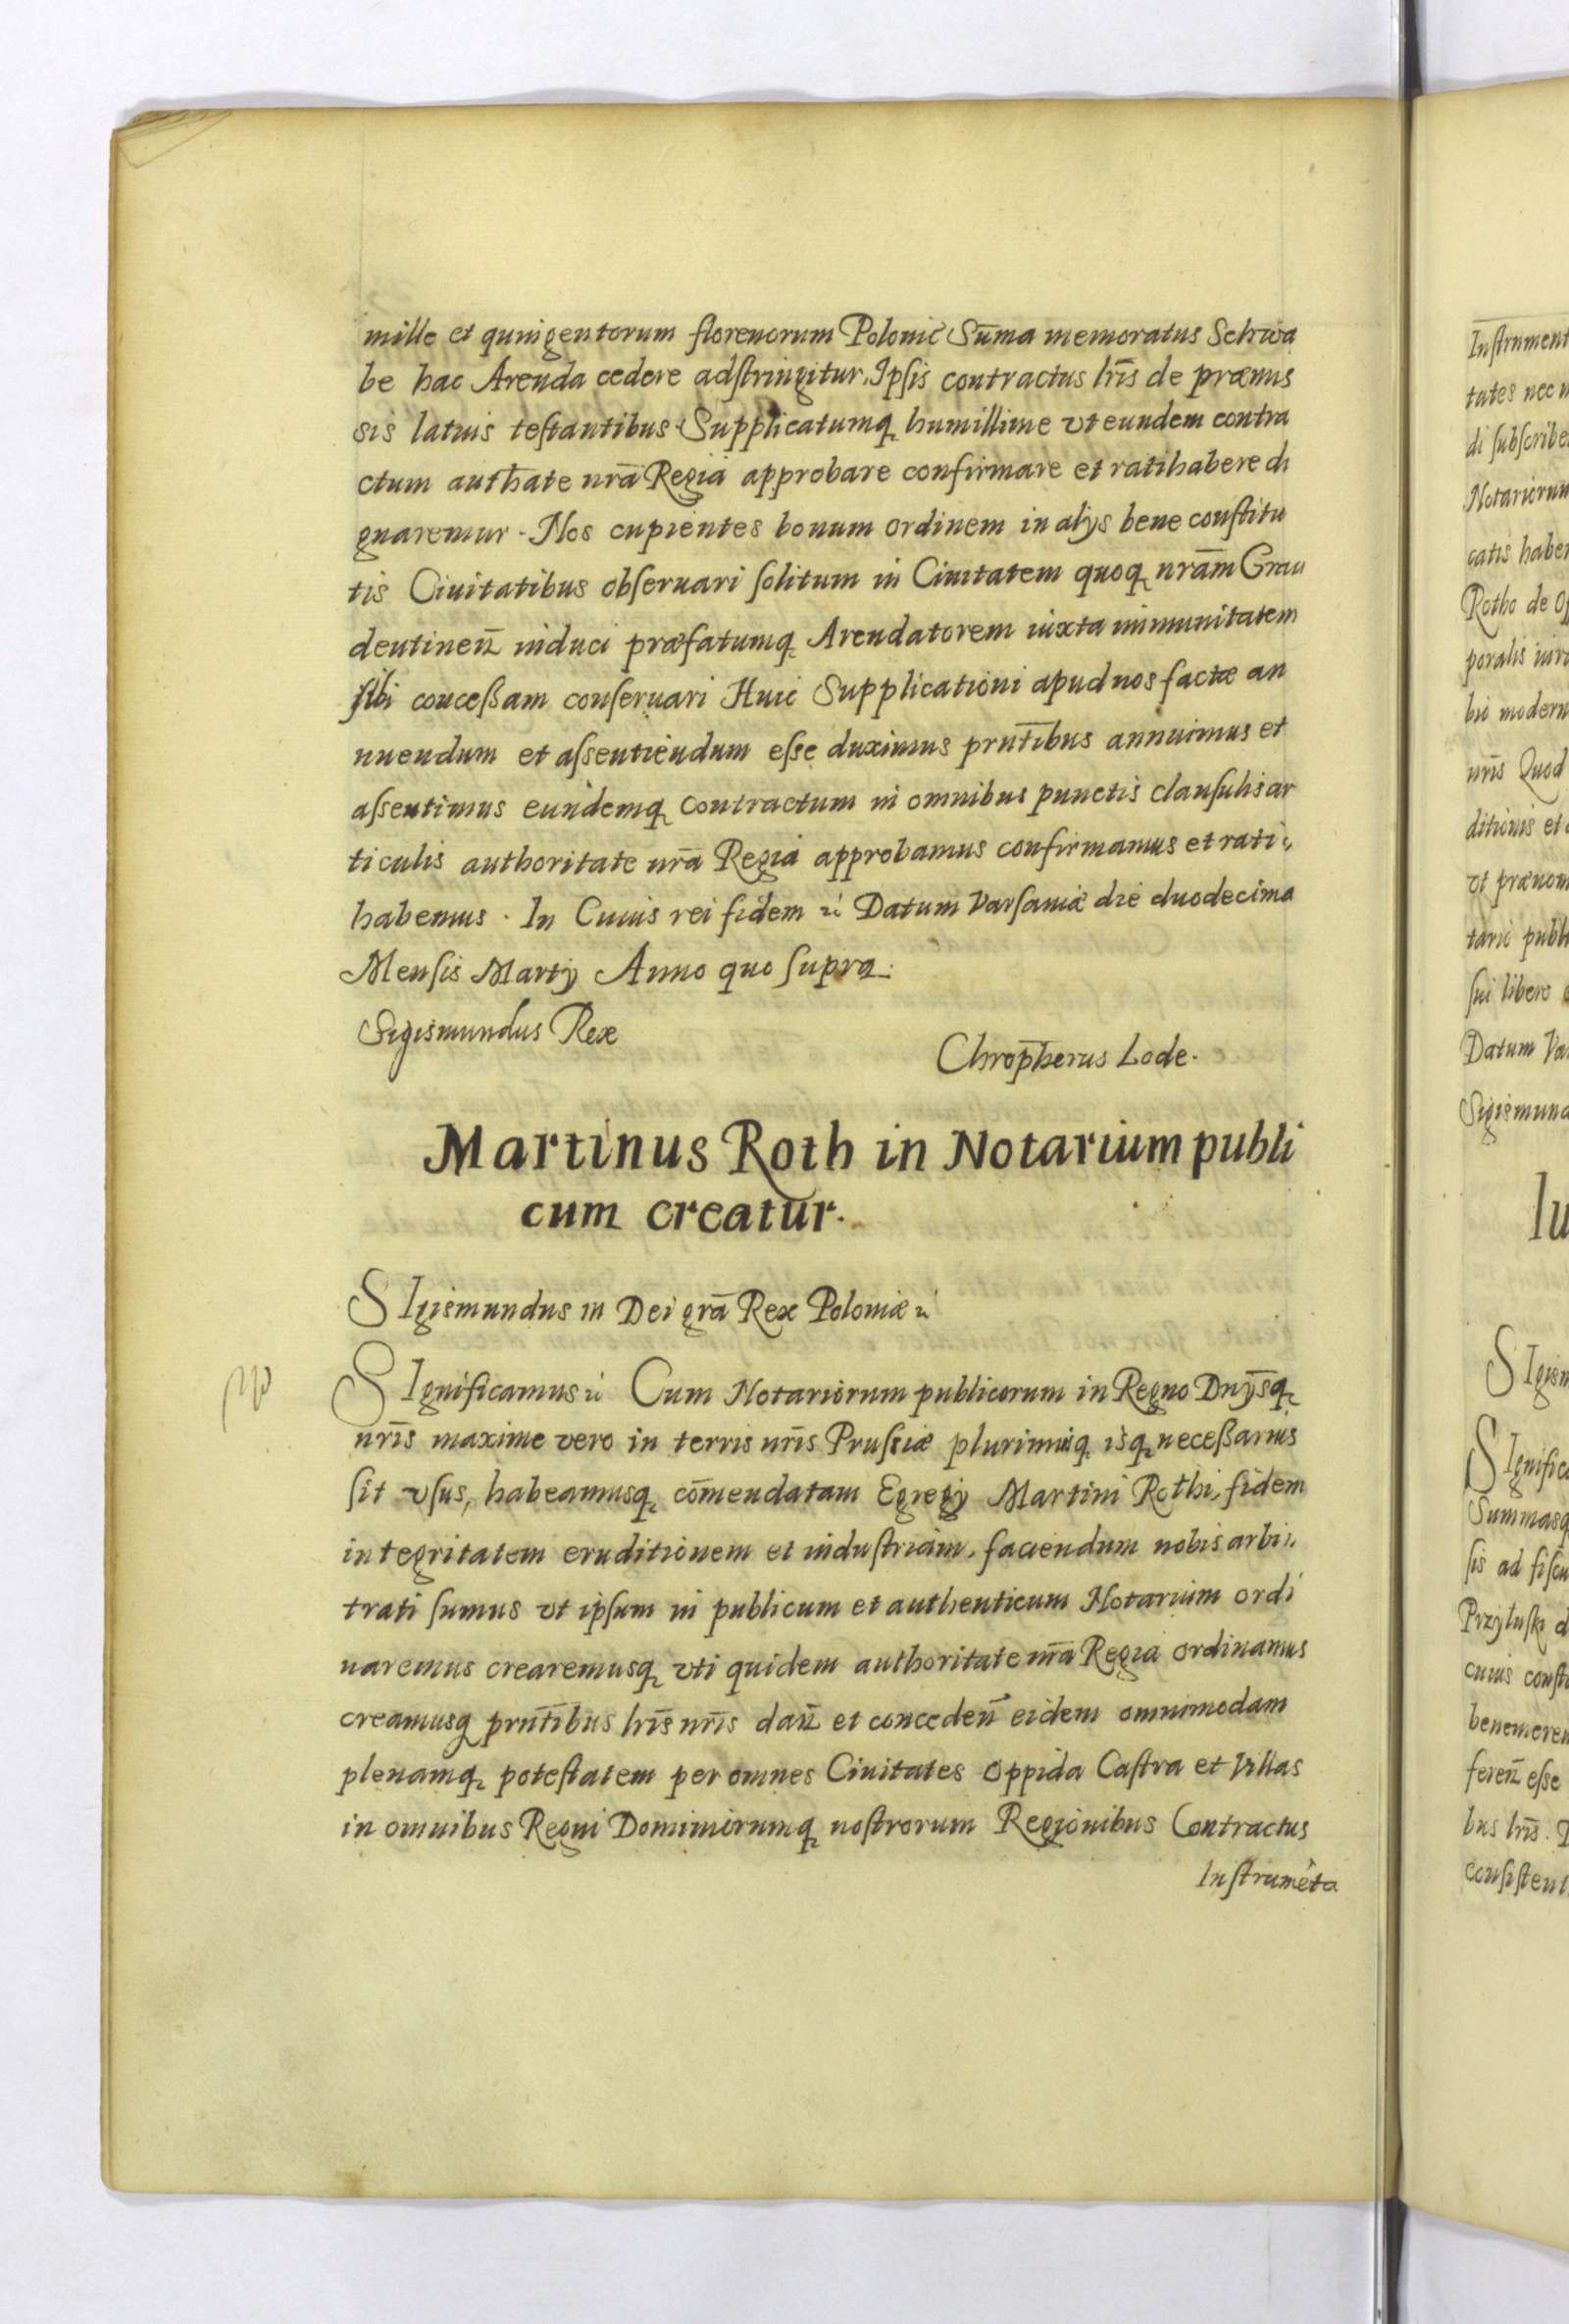 mille et quingentorum florenorum Polonic Sum̄a memoratus Schwa
be hac Arenda cedere adstringitur, Ipsis contractus lr̄is de præmis
sis latius testantibus. Supplicatumq̨ humillime vt eundem contra
ctum authate nrā Regia approbare confirmare et ratihabere di
gnaremur. Nos cupientes bonum ordinem in alijs bene constitu
tis Ciuitatibus obseruari solitum in Ciuitatem quoq̨ nrām Grau
dentinen̄ induci præfatumq̨ Arendatorem iuxta immunitatem
sibi conceßam conseruari Huic Supplicationi apud nos factæ an
nuendum et assentiendum esse duximus prnt̄ibus annuimus et
assentimus eundemq̨ contractum in omnibus punctis clausulis ar
ticulis authoritate nrā Regia approbamus confirmamus et rati,,
habemus. In Cuius rei fidem &c Datum Varsauiæ die duodecima
Mensis Martij Anno quo supra.
Sigismundus Rex
Chrop̄herus Lode.
Martinus Roth in Notarium publi
cum creatur.
SIgismundus III Dei grā Rex Poloniæ &c
SIgnificamus &c Cum Notariorum publicorum in Regno Dnījsq̨
nrīs maxime vero in terris nrīs Prussiæ plurimusq̨ isq̨ neceßarius
sit vsus, habeamusq̨ com̄endatam Egregij Martini Rothi, fidem
integritatem eruditionem et industriam, faciendum nobis arbi,,
trati sumus vt ipsum in publicum et authenticum Notarium ordi
naremus crearemusq̨ vti quidem authoritate nrā Regia ordinamus
creamusq̨ prnt̄ibus lrīs nrīs dan̄ et conceden̄ eidem omnimodam
plenamq̨ potestatem per omnes Ciuitates Oppida Castra et Villas
in omnibus Regni Dominiorumq̨ nostrorum Regionibus Contractus
Instrumēta
Instrument
tates nec
di subscribe
Notariorum
catis habe
Rotho de
poralis iur
bio modern
nrīs Quod
ditionis et
vt prænom
tario publi
sui libere
Datum Va
Sigismund
Iu
SIgism
SIgnific
Summasq
sis ad fiscu
Przyluski d
cuius const
benemeren
feren̄ esse
bus lrīs.
consistent